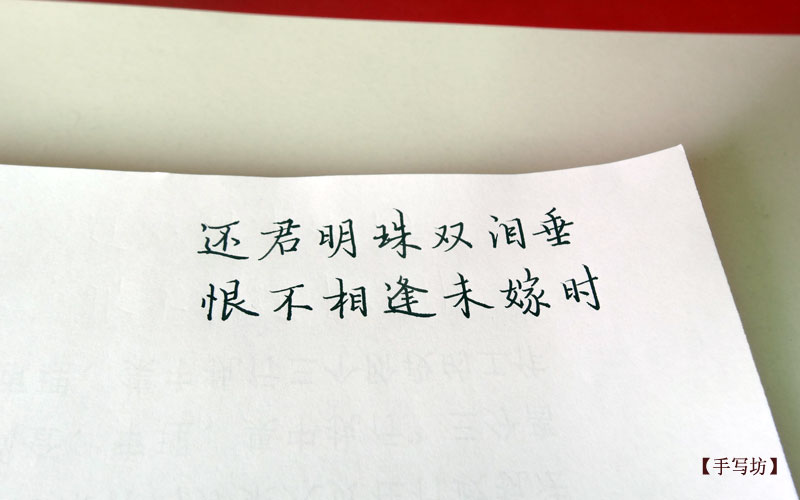 还君明珠双泪垂
恨不相逢未嫁时
【手写坊】